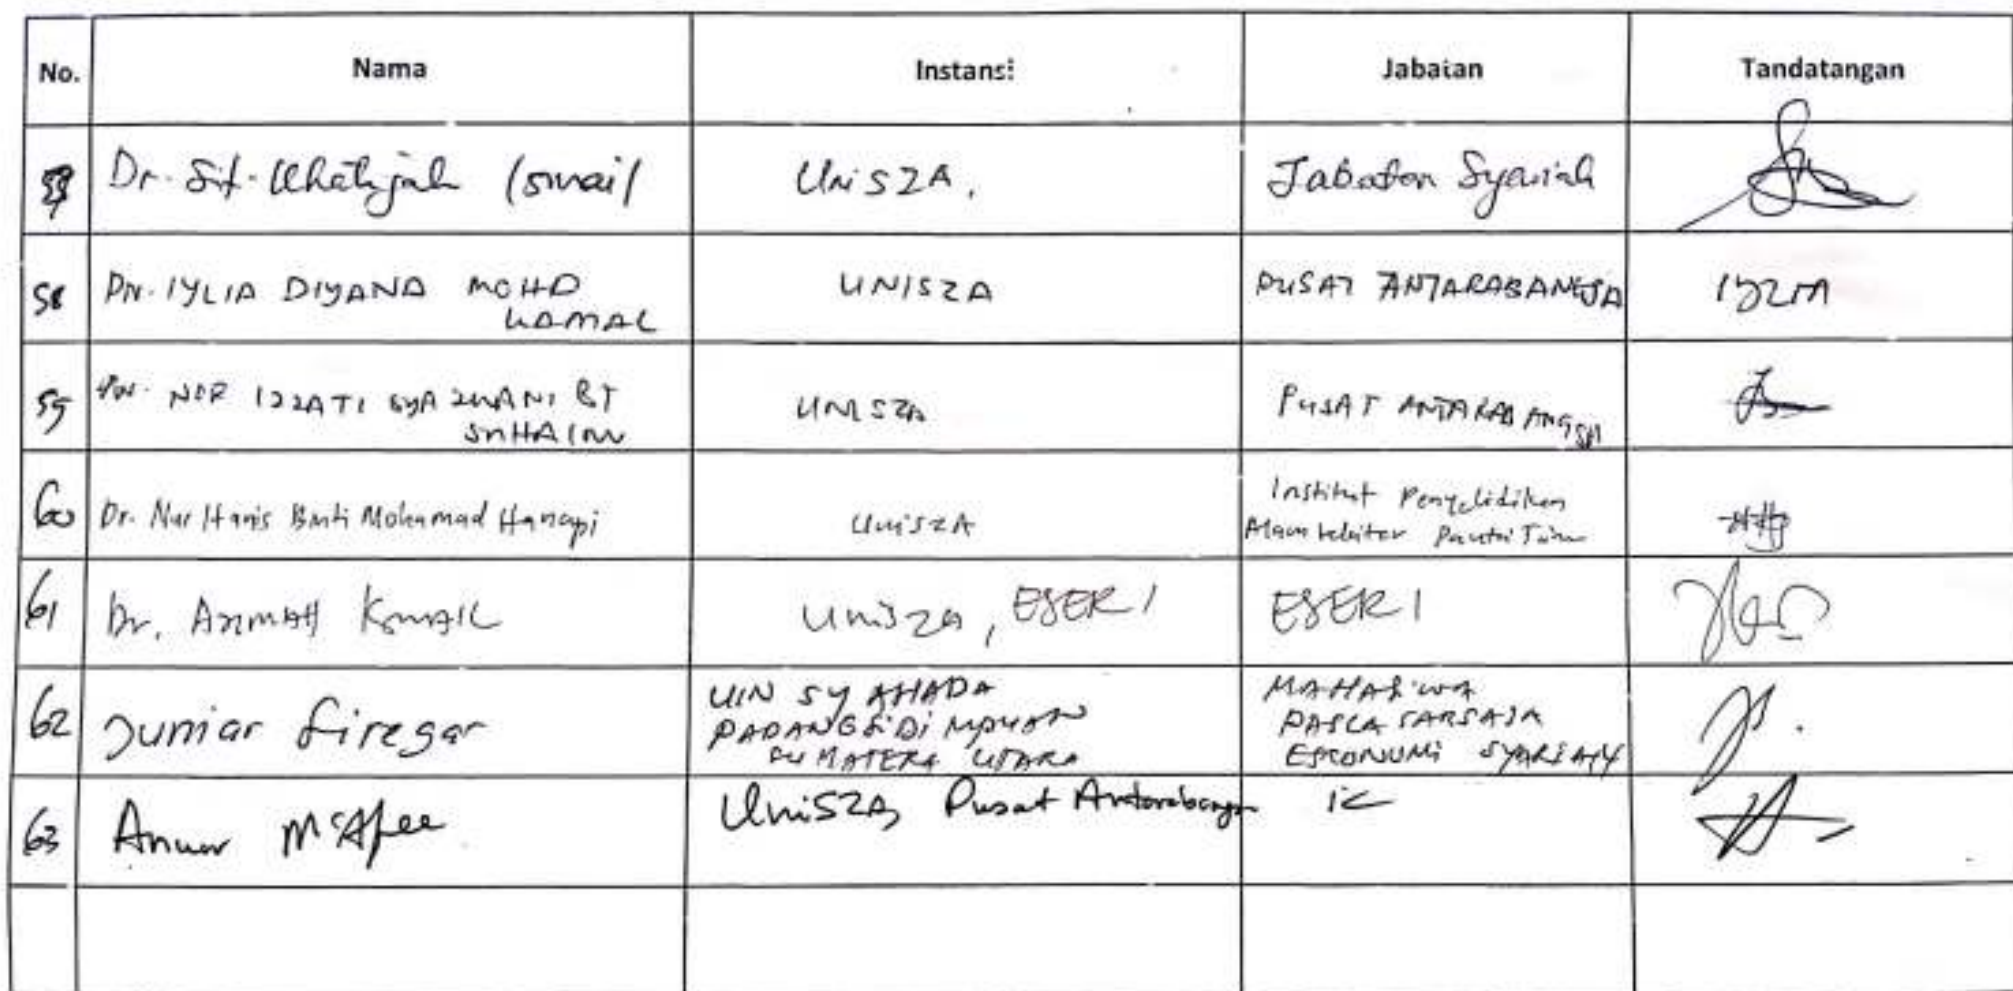 No. Nama Instansi Jabatan Tandatangan
Dr. Siti Khatijah Ismail UniSZA, Jabatan Syariah
58 PN. IYLIA DIYANA MOHD KAMAL UNISZA PUSAT ANTARABANGSA
59 NOR IZZATI SYAZWANI BT UNISZA PUSAT ANTARABANGSA
60 Dr. Nur Hanis Binti Mohamad Hanapi UniSZA Institut Penyelidikan
Alam Sekitar Pantai Timur
61 Dr. UniSZA, ESERI ESERI
62 Juniar Siregar UIN SYAHADA MAHASISWA
PADANGSIDIMPUAN PASCA SARJANA
SUMATERA UTARA SYARIAH
63 Anuar McAfee UniSZA, Pusat Antarabangsa